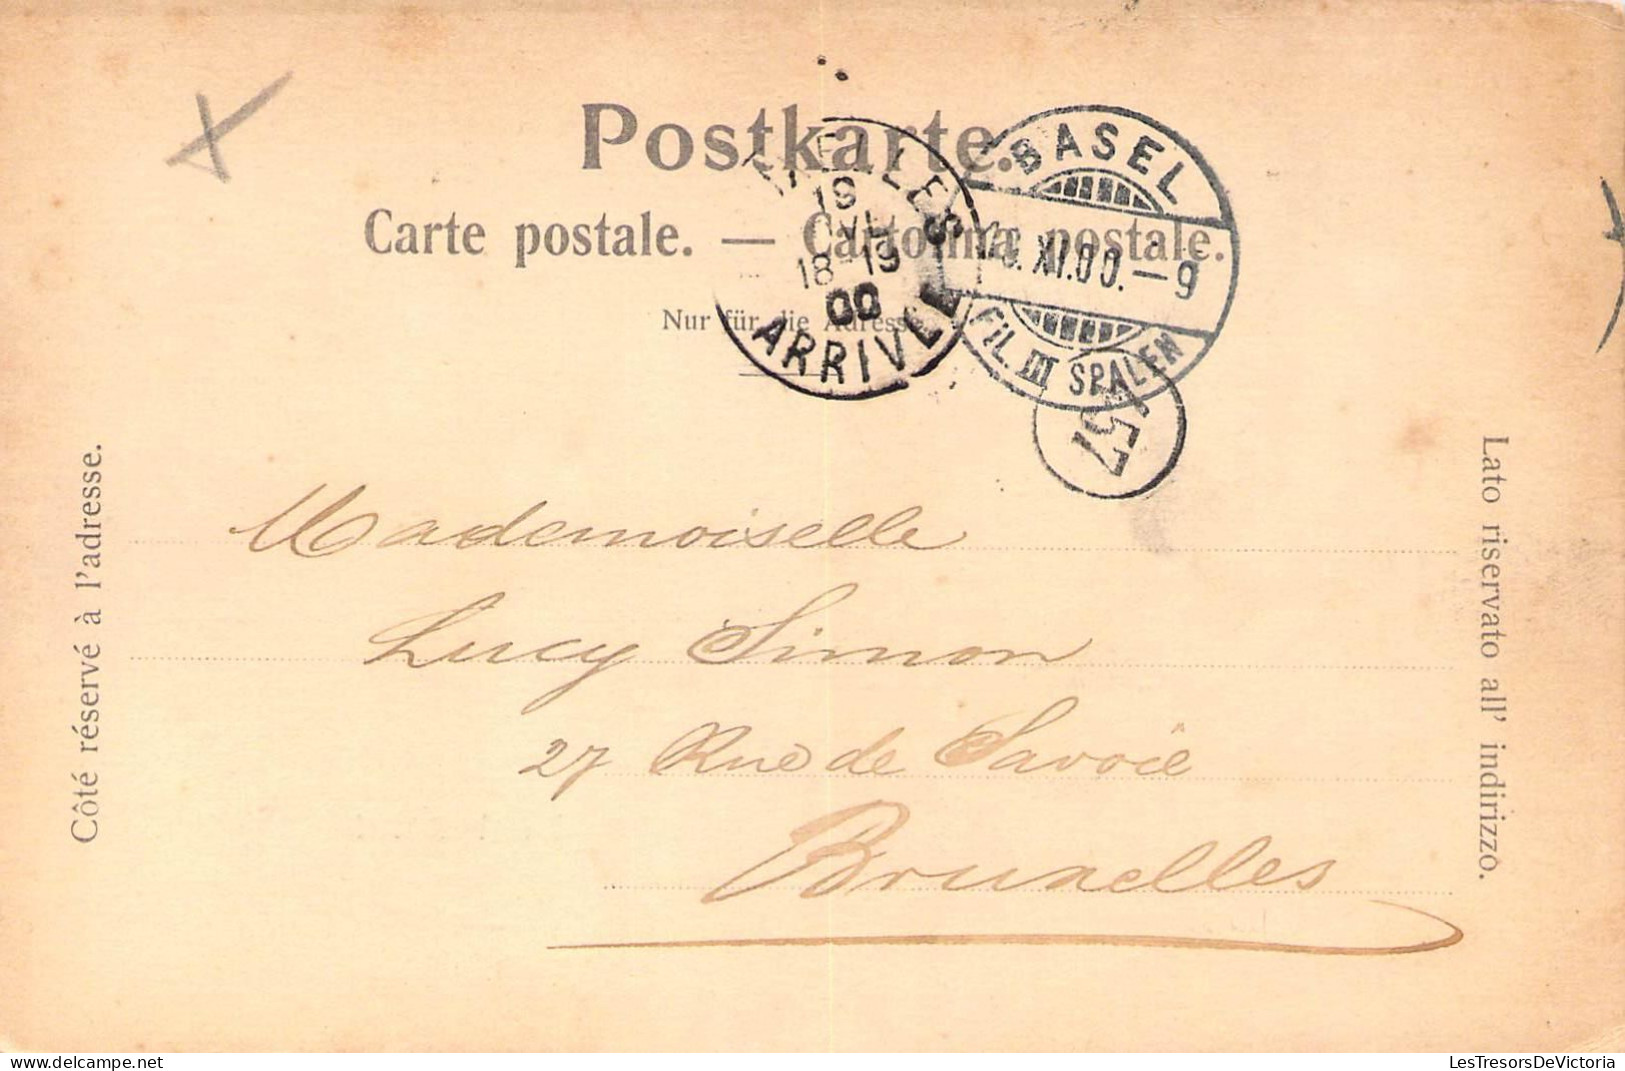 Postkarte.
Carte postale. — Cartolina postale.
Nur für die Adresse.
BASEL
XI.00.-9
FIL. III SPALEN
19
XI
18-19
00
ARRIVÉE
57
Côté réservé à l'adresse.
Lato riservato all' indirizzo.
Mademoiselle
Lucy Simon
27 Rue de Savoie
Bruxelles
LesTresorsDeVictoria